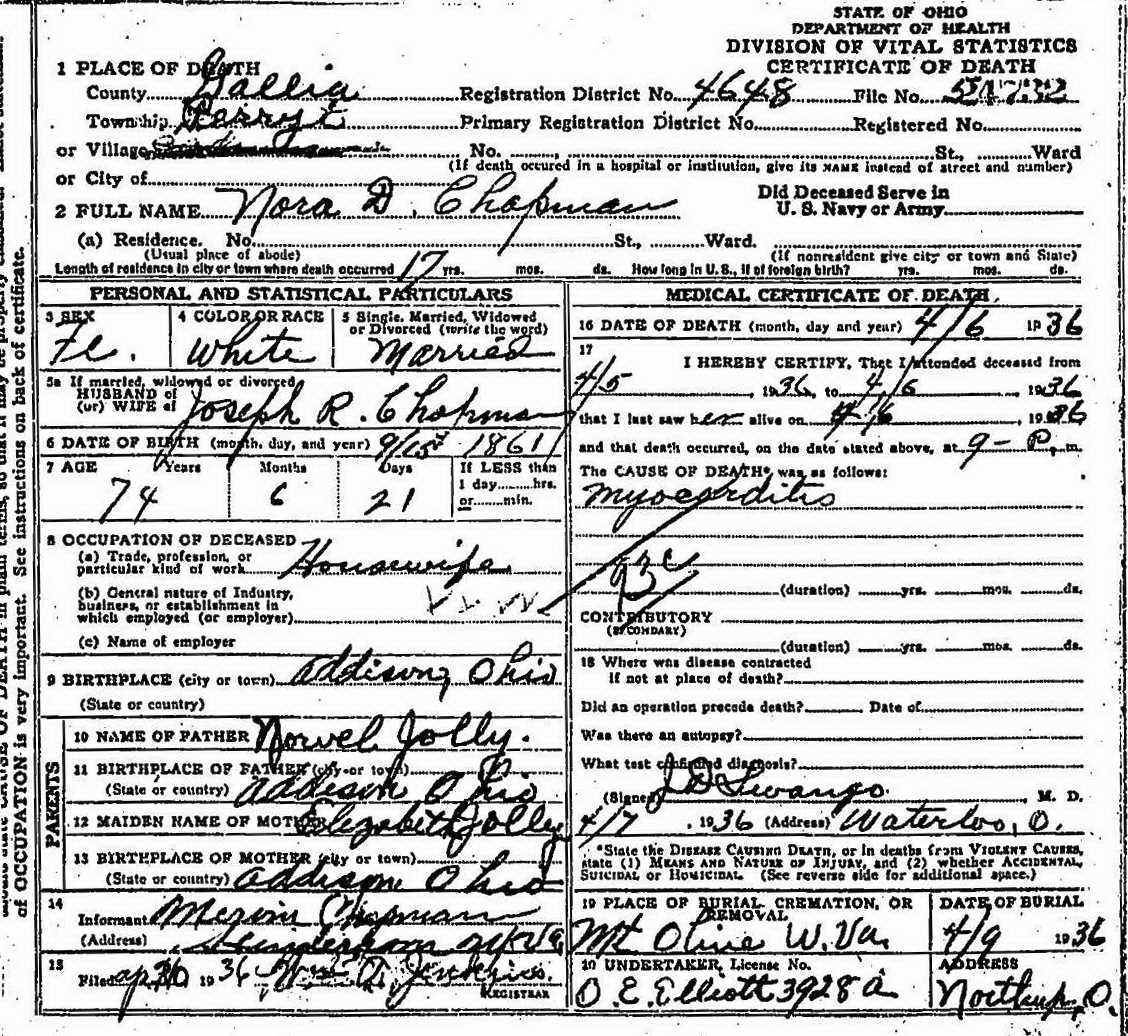 STATE OF OHIO
DEPARTMENT OF HEALTH
DIVISION OF VITAL STATISTICS
CERTIFICATE OF DEATH
1 PLACE OF DEATH
County Gallia Registration District No. 4648 File No.
Township Primary Registration District No. Registered No.
or Village No. , St., Ward
(If death occured in a hospital or institution, give its NAME instead of street and number)
or City of
Did Deceased Serve in
U. S. Navy or Army
2 FULL NAME Nora D. Chapman
(a) Residence. No. St., Ward.
(Usual place of abode) (If nonresident give city or town and State)
Length of residence in city or town where death occurred 17 yrs. mos. ds. How long in U. S., if of foreign birth? yrs. mos. ds.
PERSONAL AND STATISTICAL PARTICULARS
3 SEX
Fe.
4 COLOR OR RACE
White
5 Single. Married, Widowed
or Divorced (write the word)
Married
5a If married, widowed or divorced
HUSBAND of
(or) WIFE of Joseph R. Chapman
6 DATE OF BIRTH (month, day, and year) 9/15 1861
7 AGE Years Months Days If LESS than
1 day hrs.
or min.
74 6 21
8 OCCUPATION OF DECEASED
(a) Trade, profession, or
particular kind of work Housewife
(b) General nature of Industry,
business, or establishment in
which employed (or employer)
(c) Name of employer
9 BIRTHPLACE (city or town) Addison, Ohio
(State or country)
PARENTS
10 NAME OF FATHER Norvel Jolly.
11 BIRTHPLACE OF FATHER (city or town)
(State or country) Addison Ohio
12 MAIDEN NAME OF MOTHER Elizabeth Jolly
13 BIRTHPLACE OF MOTHER (city or town)
(State or country) Addison, Ohio
14
Informant Chapman
(Address)
15
Filed 1936 Wm. A. Jenkins.
REGISTRAR
MEDICAL CERTIFICATE OF DEATH
16 DATE OF DEATH (month, day and year) 4/6 1936
17 I HEREBY CERTIFY, That I attended deceased from
4/5, 1936, to 4/6, 1936
that I last saw her alive on 4-6, 1936
and that death occurred, on the date stated above, at 9- P. m.
The CAUSE OF DEATH* was as follows:
Myocarditis
93c
(duration) yrs. mos. ds.
CONTRIBUTORY
(SECONDARY)
(duration) yrs. mos. ds.
18 Where was disease contracted
if not at place of death?
Did an operation precede death? Date of
Was there an autopsy?
What test confirmed diagnosis?
(Signed) Swango, M. D.
4/7, 1936 (Address) Waterloo, O.
*State the DISEASE CAUSING DEATH, or in deaths from VIOLENT CAUSES,
state (1) MEANS AND NATURE OF INJURY, and (2) whether ACCIDENTAL,
SUICIDAL or HOMICIDAL (See reverse side for additional space.)
19 PLACE OF BURIAL, CREMATION, OR
REMOVAL
Mt Olive W. Va.
DATE OF BURIAL
4/9 1936
20 UNDERTAKER, License No.
O. E. Elliott 3928 a
ADDRESS
Northup, O.
of OCCUPATION is very important. See instructions on back of certificate.